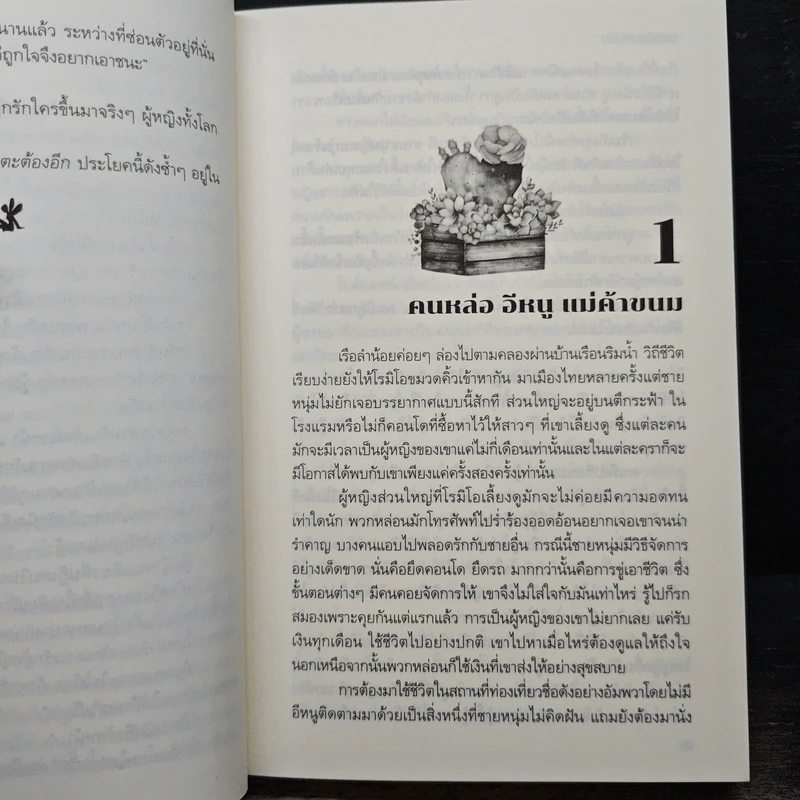 นานแล้ว ระหว่างที่ซ่อนตัวอยู่ที่นั่น
ถูกใจจึงอยากเอาชนะ”
กรักใครขึ้นมาจริงๆ ผู้หญิงทั้งโลก
ตะต้องอีก ประโยคนี้ดังซ้ำๆ อยู่ใน
1
คนหล่อ อีหนู แม่ค้าขนม
เรือลำน้อยค่อยๆ ล่องไปตามคลองผ่านบ้านเรือนริมน้ำ วิถีชีวิต
เรียบง่ายยังให้โรมิโอขมวดคิ้วเข้าหากัน มาเมืองไทยหลายครั้งแต่ชาย
หนุ่มไม่ยักเจอบรรยากาศแบบนี้สักที ส่วนใหญ่จะอยู่บนตึกระฟ้า ใน
โรงแรมหรือไม่ก็คอนโดที่ซื้อหาไว้ให้สาวๆ ที่เขาเลี้ยงดู ซึ่งแต่ละคน
มักจะมีเวลาเป็นผู้หญิงของเขาแค่ไม่กี่เดือนเท่านั้นและในแต่ละคราก็จะ
มีโอกาสได้พบกับเขาเพียงแค่ครั้งสองครั้งเท่านั้น
ผู้หญิงส่วนใหญ่ที่โรมิโอเลี้ยงดูมักจะไม่ค่อยมีความอดทน
เท่าใดนัก พวกหล่อนมักโทรศัพท์ไปร่ำร้องออดอ้อนอยากเจอเขาจนน่า
รำคาญ บางคนแอบไปพลอดรักกับชายอื่น กรณีนี้ชายหนุ่มมีวิธีจัดการ
อย่างเด็ดขาด นั่นคือยึดคอนโด ยึดรถ มากกว่านั้นคือการขู่เอาชีวิต ซึ่ง
ขั้นตอนต่างๆ มีคนคอยจัดการให้ เขาจึงไม่ใส่ใจกับมันเท่าไหร่ รู้ไปก็รก
สมองเพราะคุยกันแต่แรกแล้ว การเป็นผู้หญิงของเขาไม่ยากเลย แค่รับ
เงินทุกเดือน ใช้ชีวิตไปอย่างปกติ เขาไปหาเมื่อไหร่ต้องดูแลให้ถึงใจ
นอกเหนือจากนั้นพวกหล่อนก็ใช้เงินที่เขาส่งให้อย่างสุขสบาย
การต้องมาใช้ชีวิตในสถานที่ท่องเที่ยวชื่อดังอย่างอัมพวาโดยไม่มี
อีหนูติดตามมาด้วยเป็นสิ่งหนึ่งที่ชายหนุ่มไม่คิดฝัน แถมยังต้องมานั่ง